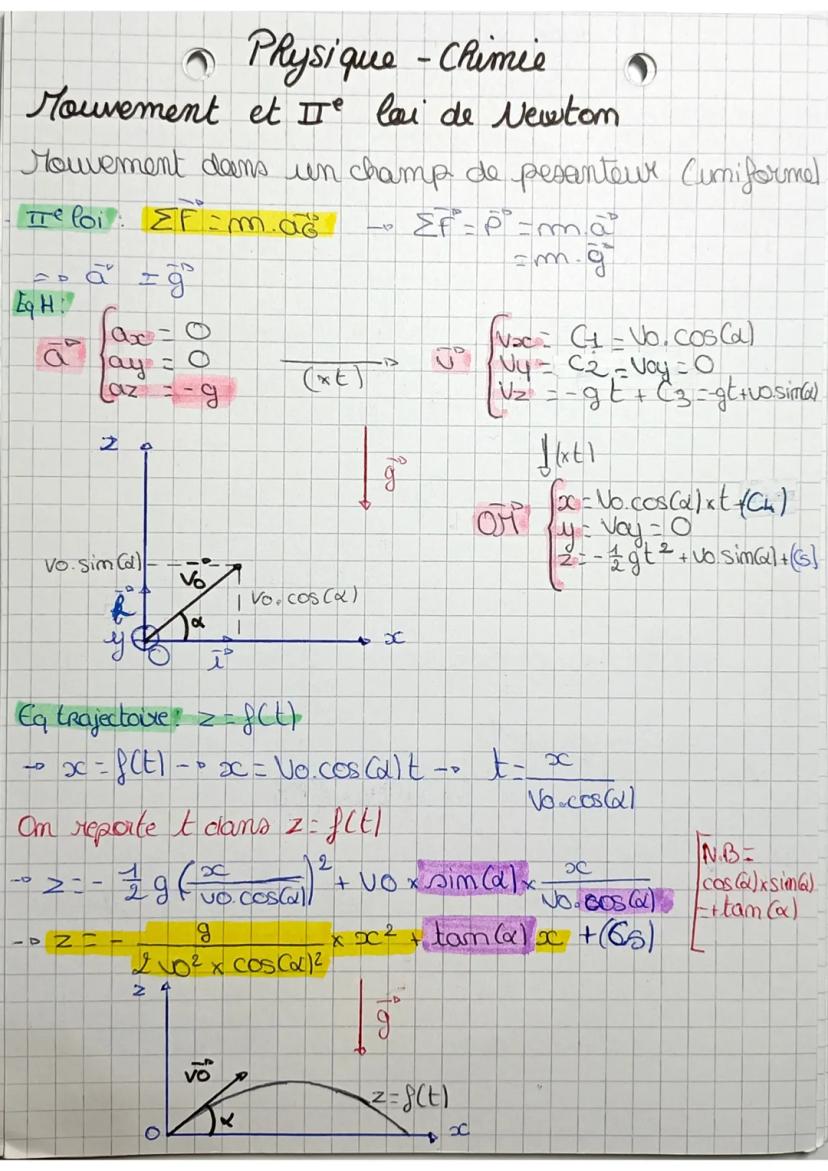 Physique - Chimie
Mouvement et IIe loi de Newton
Mouvement dans un champ de pesanteur (uniforme)
IIe loi : ΣF⃗ = m.a⃗G → ΣF⃗ = P⃗ = m.a⃗
= m.g⃗
=> a⃗ = g⃗
Eq H:
a⃗ { ax = 0
ay = 0
az = -g
(xt)
v⃗ { Vx = C1 = V0.cos(α)
Vy = C2 = V0y = 0
Vz = -gt + C3 = -gt + v0 sin(α)
↓(xt)
OM⃗ { x = V0.cos(α) x t + (C4)
y = V0y = 0
z = -1/2 gt² + v0 sin(α) + (C5)
z
g⃗
v0.sin(α)
v⃗0
v0.cos(α)
k⃗
α
y
O
i⃗
x
Eq trajectoire: z = f(t)
→ x = f(t) → x = V0.cos(α) t → t = x / V0.cos(α)
On reporte t dans z = f(t)
→ z = - 1/2 g (x / v0.cos(α))² + V0 x sin(α) x x / V0.cos(α)
N.B =
cos(α) x sin(α)
→ tan(α)
→ z = - g / 2 v0² x cos(α)² x x² + tan(α) x + (C5)
z
g⃗
v⃗0
α
z = f(t)
O
x